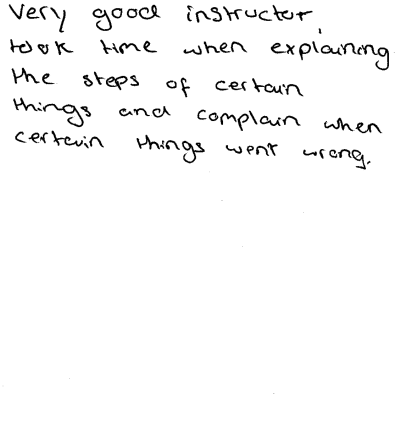 Very good instructor,
took time when explaining
the steps of certain
things and complain when
certain things went wrong.